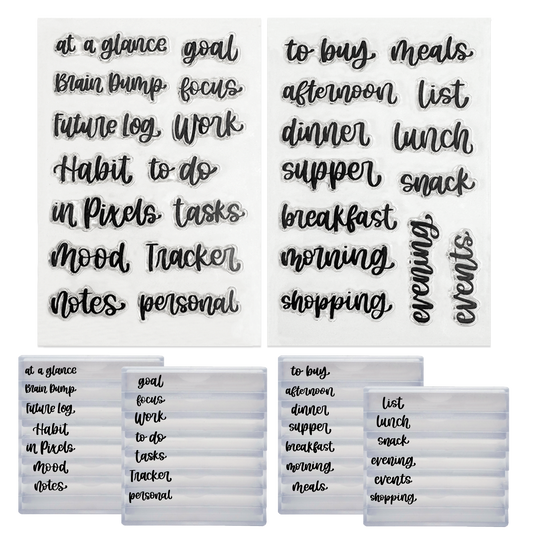 at a glance goal
Brain Dump focus
Future log Work
Habit to do
in Pixels tasks
Mood Tracker
notes personal
to buy meals
afternoon list
dinner lunch
supper snack
breakfast
morning
shopping
evening
events
at a glance
Brain Dump
Future log
Habit
in Pixels
Mood
notes
goal
focus
Work
to do
tasks
Tracker
personal
to buy
afternoon
dinner
supper
breakfast
morning
meals
list
lunch
snack
evening
events
shopping